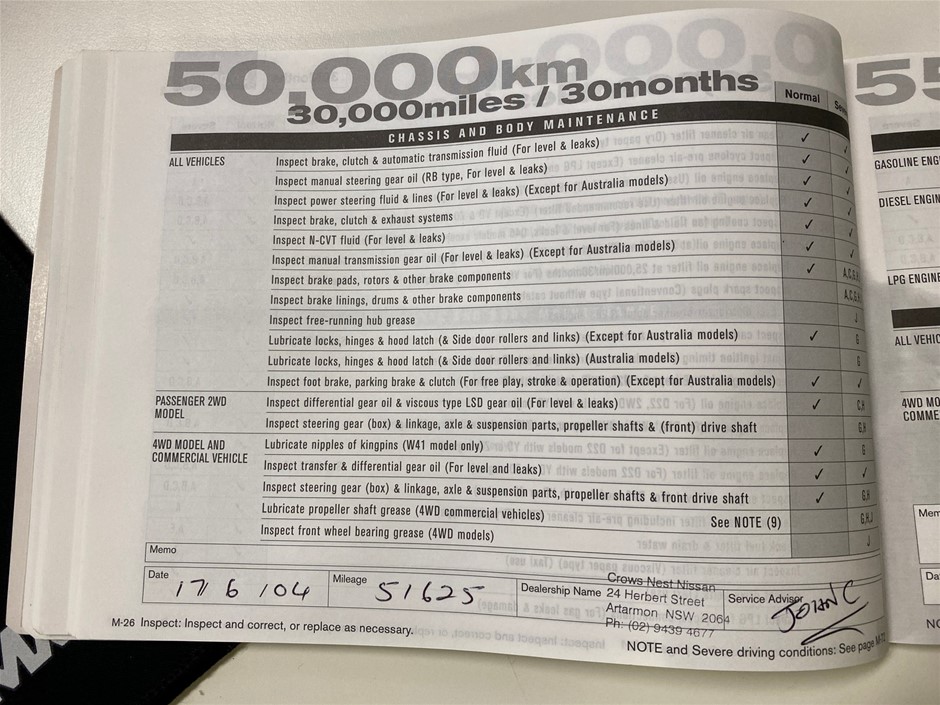 50,000km
30,000miles / 30months
Normal
CHASSIS AND BODY MAINTENANCE
ALL VEHICLES
Inspect brake, clutch & automatic transmission fluid (For level & leaks) ✓ ✓
Inspect manual steering gear oil (RB type, For level & leaks) ✓ ✓
Inspect power steering fluid & lines (For level & leaks) (Except for Australia models) ✓ ✓
Inspect brake, clutch & exhaust systems ✓ ✓
Inspect N-CVT fluid (For level & leaks) ✓ ✓
Inspect manual transmission gear oil (For level & leaks) (Except for Australia models) ✓ ✓
Inspect brake pads, rotors & other brake components ✓ A,C,G,
Inspect brake linings, drums & other brake components A,C,G,
Inspect free-running hub grease J
Lubricate locks, hinges & hood latch (& Side door rollers and links) (Except for Australia models) ✓ G
Lubricate locks, hinges & hood latch (& Side door rollers and links) (Australia models) G
Inspect foot brake, parking brake & clutch (For free play, stroke & operation) (Except for Australia models) ✓ ✓
PASSENGER 2WD MODEL
Inspect differential gear oil & viscous type LSD gear oil (For level & leaks) ✓ C,H
Inspect steering gear (box) & linkage, axle & suspension parts, propeller shafts & (front) drive shaft G,H
4WD MODEL AND COMMERCIAL VEHICLE
Lubricate nipples of kingpins (W41 model only) ✓ G
Inspect transfer & differential gear oil (For level and leaks) ✓ ✓
Inspect steering gear (box) & linkage, axle & suspension parts, propeller shafts & front drive shaft ✓ G,H
Lubricate propeller shaft grease (4WD commercial vehicles) See NOTE (9) G,H,J
Inspect front wheel bearing grease (4WD models) J
Memo
Date 17/6/04
Mileage 51625
Dealership Name
Crows Nest Nissan
24 Herbert Street
Artarmon NSW 2064
Ph: (02) 9439 4677
Service Advisor JOHN C
M-26 Inspect: Inspect and correct, or replace as necessary.
NOTE and Severe driving conditions: See page M-
55
GASOLINE ENG
DIESEL ENGIN
LPG ENGINE
ALL VEHIC
4WD MO
COMME
Mem
Da